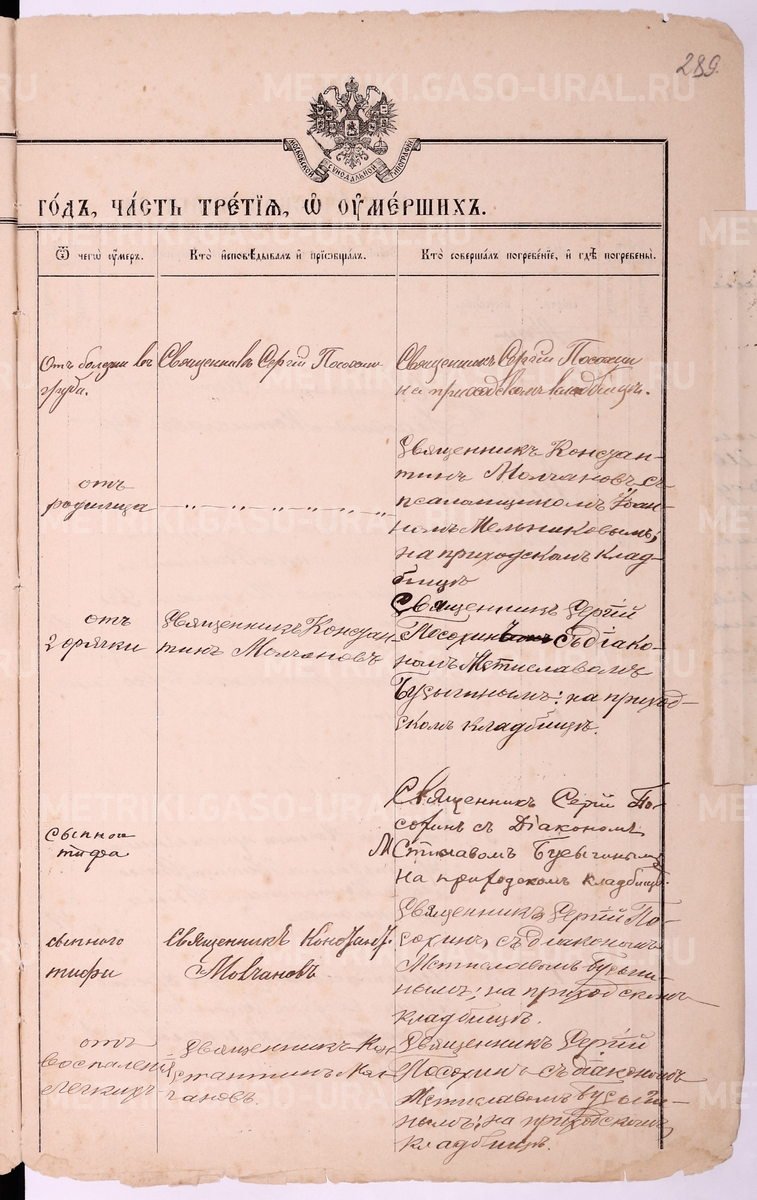 289.
МОСКОВСКОЙ СѴНОДАЛЬНОЙ ТИПОГРАФІИ
ГОДЪ, ЧАСТЬ ТРЕТІЯ, Ѿ ОУМЕРШИХЪ.
Ѿ чегѡ оумеръ.
Кто исповѣдывалъ и пріобщалъ.
Кто совершалъ погребеніе, и гдѣ погребены.
Отъ болезни въ
груди.
Священникъ Сергій Посохин
Священникъ Сергій Посохин
на приходскомъ кладбищѣ.
отъ
родимца
„ „ „ „ „ „
Священникъ Констан-
тинъ Молчановъ, съ
псаломщикомъ Іоан-
номъ Мельниковымъ;
на приходскомъ клад-
бищѣ
отъ
горячки
Священникъ Констан
тинъ Молчановъ
Священникъ Сергій
Посохинъ съ діако-
номъ Мстиславомъ
Бусыгинымъ: на приход-
скомъ кладбищѣ.
сыпного
тифа
Священникъ Сергій По-
сохинъ съ Діакономъ
Мстиславомъ Бусыгинымъ
на приходскомъ кладбищѣ.
сыпного
тифи
Священникъ Констант.
Молчановъ
Священникъ Сергій По-
сохинъ, съ діакономъ
Мстиславомъ Бусыги-
нымъ; на приходскомъ
кладбищѣ.
отъ
воспаленія
легкихъ
Священникъ Кон
стантинъ Мол-
чановъ.
Священникъ Сергій
Посохинъ съ діакономъ
Мстиславомъ Бусыги-
нымъ; на приходскомъ
кладбищѣ.
METRIKI.GASO-URAL.RU